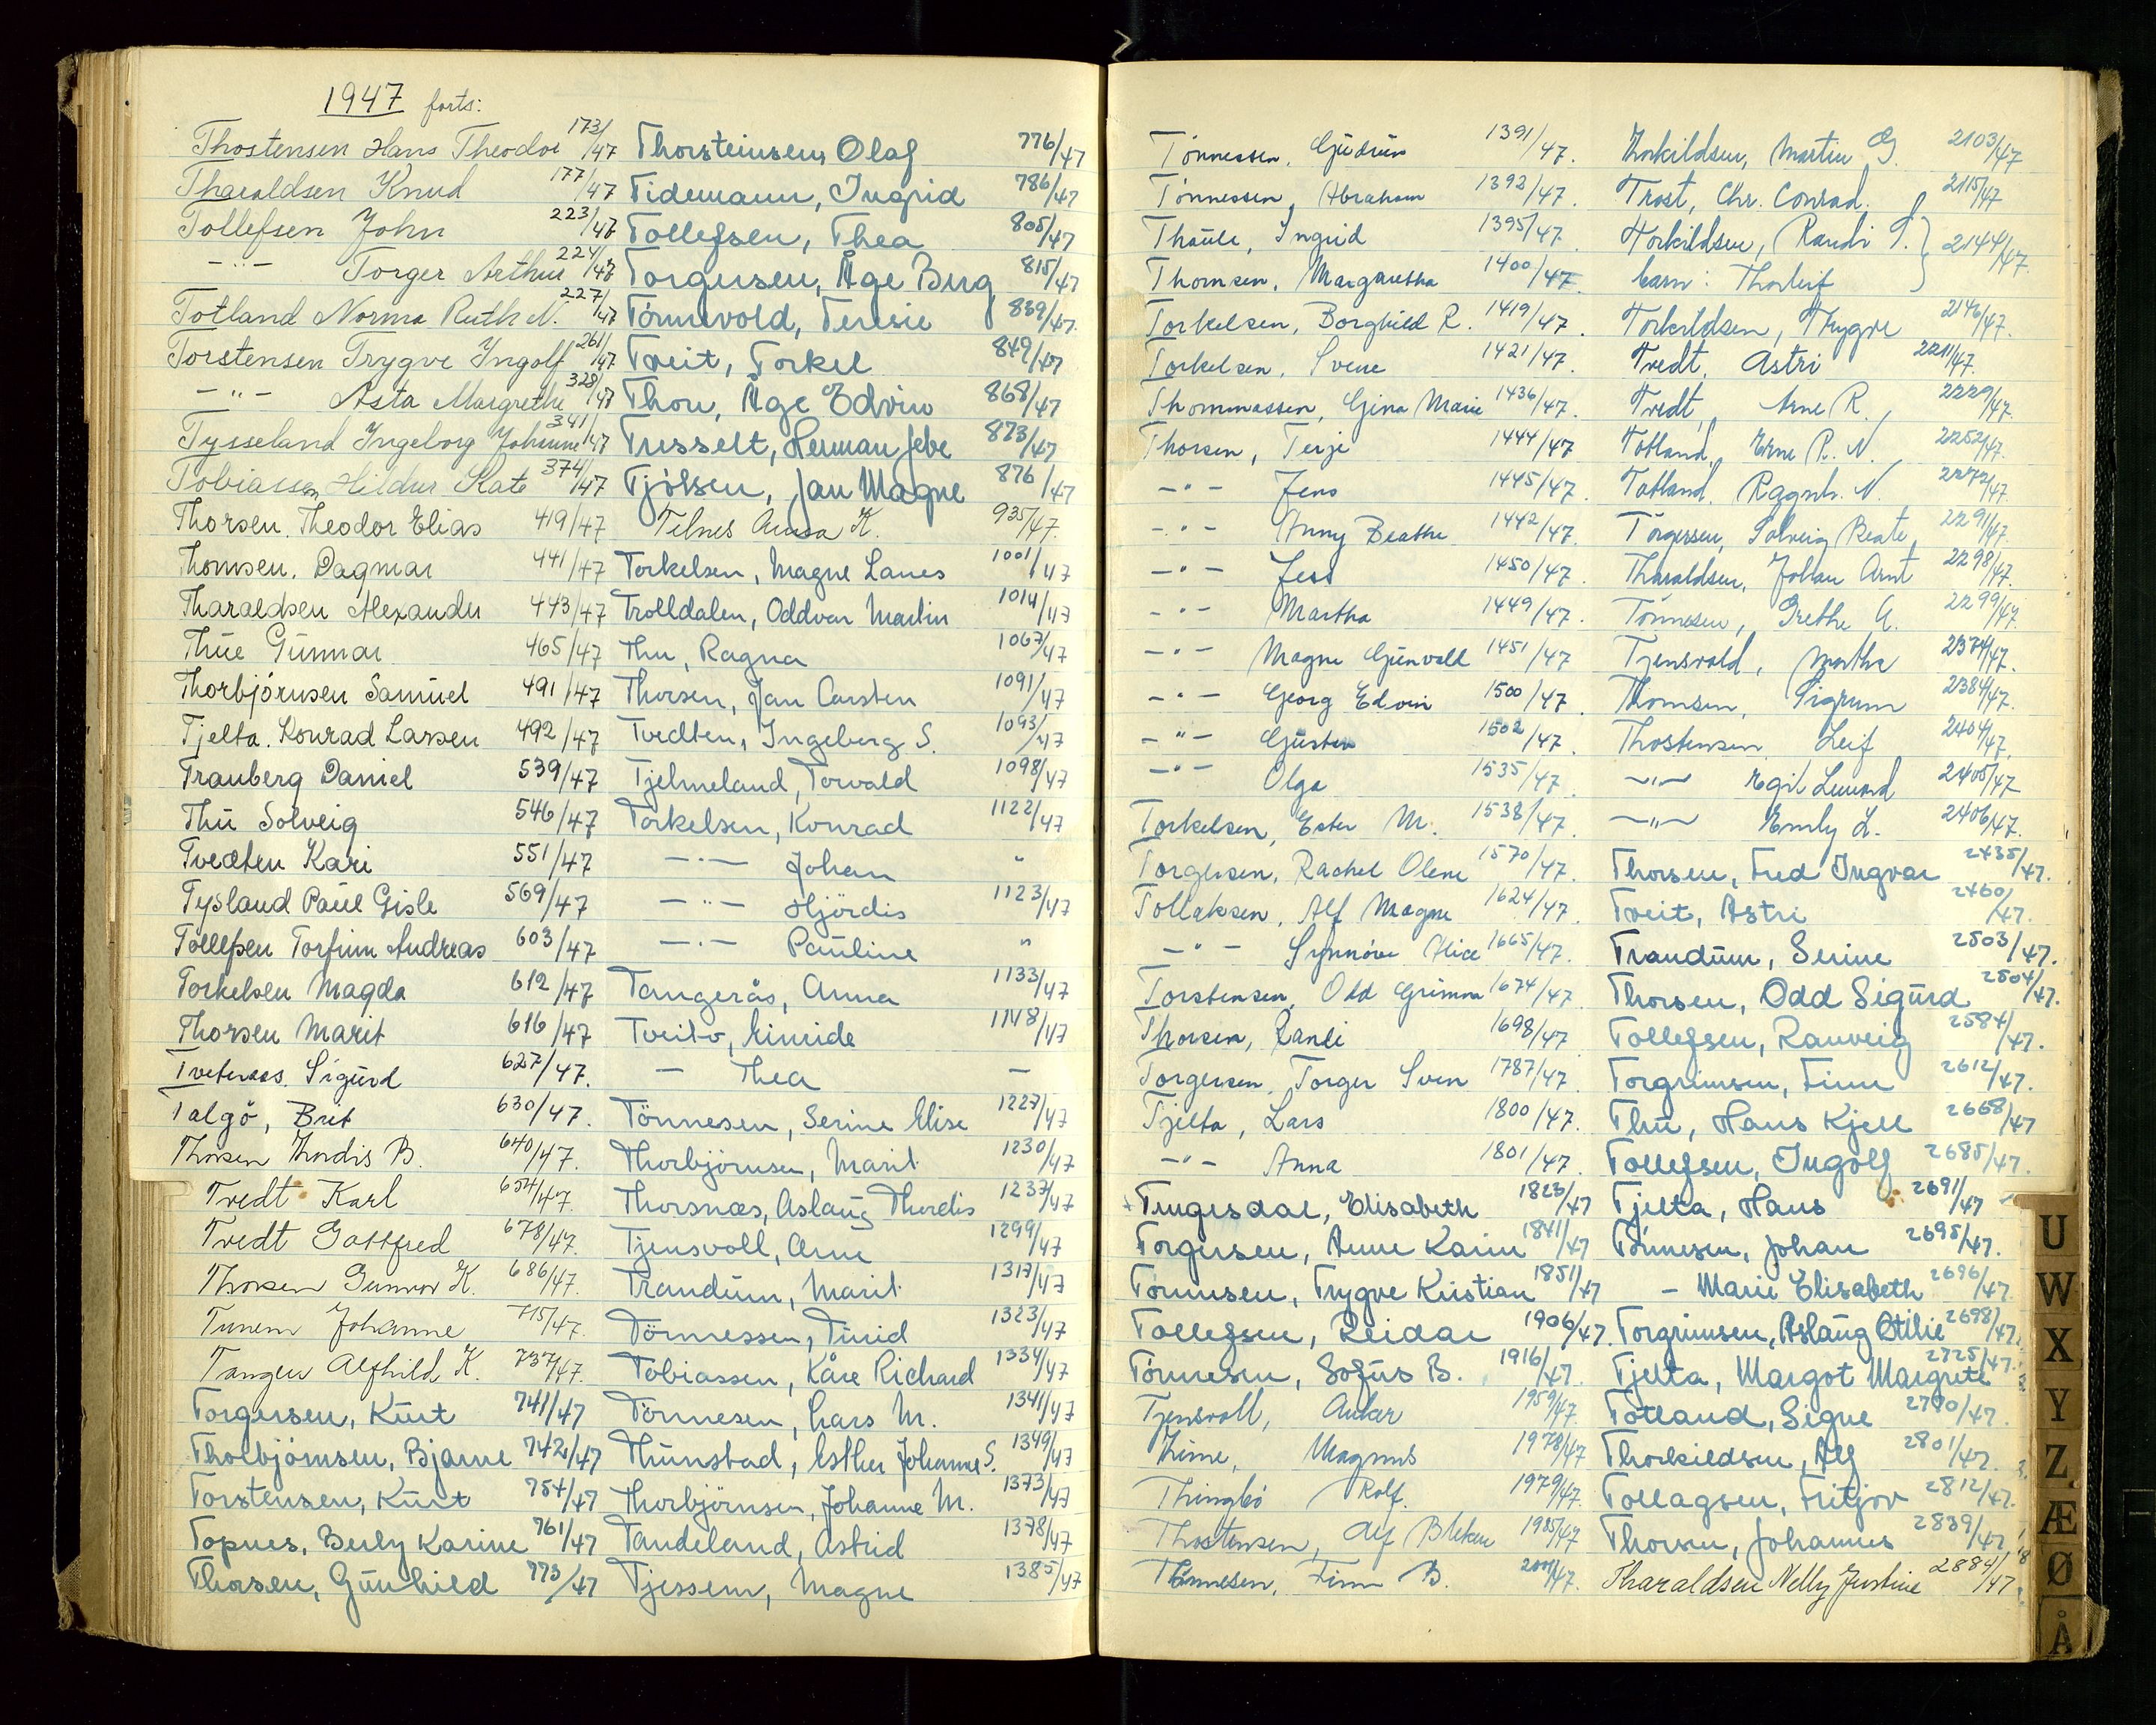 1947 forts:
Thostensen Hans Theodor 173/47
Tharaldsen Knud 177/47
Tollefsen John 223/47
-"- Torger Arthur 224/47
Totland Norma Ruth N. 227/47
Torstensen Trygve Ingolf 261/47
-"- Asta Margrethe 328/47
Tysseland Ingeborg Johanne 341/47
Tobiassen Hildur Kate 374/47
Thorsen. Theodor Elias 419/47
Thomsen. Dagmar 441/47
Tharaldsen Alexander 443/47
Thue Gunnar 465/47
Thorbjørnsen Samuel 491/47
Tjelta. Konrad Larsen 492/47
Tranberg Daniel 539/47
Thu Solveig 546/47
Tvedten Kari 551/47
Tysland Paul Gisle 569/47
Tollefsen Torfinn Andreas 603/47
Torkelsen Magda 612/47
Thorsen Marit 616/47
Tveteraas. Sigurd 627/47.
Talgö, Brit 630/47.
Thorsen Thordis B. 640/47.
Tvedt Karl 654/47.
Tvedt Gottfred 678/47.
Thorsen Gunvor K. 686/47.
Tunem Johanne 715/47.
Tangen Alfhild K. 737/47.
Torgersen, Kurt 741/47
Thorbjörnsen, Bjarne 742/47
Torstensen, Kurt 754/47
Topnes, Berly Karine 761/47
Thorsen, Gunhild 773/47
Thorsteinsen, Olaf 776/47
Tidemann, Ingrid 786/47
Tollefsen, Thea 805/47
Torgersen, Åge Berg 815/47
Tönnevold, Teresie 839/47.
Tveit, Torkel 849/47
Thou, Åge Edvin 868/47
Tresselt, Herman Jebe 873/47
Tjölsen, Jan Magne 876/47
Telnes Anna K. 935/47.
Torkelsen, Magne Lanes 1001/47
Trolldalen, Oddvar Martin 1014/47
Thu, Ragna 1067/47
Thorsen, Jan Carsten 1091/47
Tvedten, Ingeborg S. 1093/47
Tjelmeland, Torvald 1098/47
Torkelsen, Konrad 1122/47
-"- Johan "
-"- Hjördis 1123/47
-"- Pauline "
Tangerås, Anna 1133/47
Tveito, Eineide 1148/47
- Thea -
Tönnesen, Serine Elise 1227/47
Thorbjörnsen, Marit 1230/47
Thorsnæs, Aslaug Thordis 1237/47
Tjensvoll, Arne 1299/47
Trandum, Marit 1317/47
Tönnessen, Turid 1323/47
Tobiassen, Kåre Richard 1334/47
Tönnesen, Lars M. 1341/47
Thunstad, Esther Johanne S. 1349/47
Thorbjörnsen, Johanne M. 1373/47
Tandeland, Astrid 1378/47
Tjessem, Magne 1385/47
Tönnessen, Gudrun 1391/47.
Tönnessen, Abraham 1392/47.
Thaule, Ingrid 1395/47.
Thomsen, Margaretha 1400/47.
Torkelsen, Borghild R. 1419/47.
Torkelsen, Svene 1421/47.
Thommassen, Gina Marie 1436/47.
Thorsen, Terje 1444/47
-"- Jens 1445/47.
-"- Anny Beathe 1442/47.
-"- Jess 1450/47.
-"- Martha 1449/47.
-"- Magne Gunvald 1451/47
-"- Georg Edvin 1500/47.
-"- Gustav 1502/47.
-"- Olga 1535/47.
Torkelsen, Ester M. 1538/47.
Torgersen, Rachel Olene 1570/47.
Tollaksen, Alf Magne 1624/47.
-"- Synnöve Alice 1665/47.
Torstensen, Odd Grimm 1674/47.
Thorsen, Randi 1698/47
Torgersen, Torger Sven 1787/47.
Tjelta, Lars 1800/47.
-"- Anna 1801/47.
Tengesdal, Elisabeth 1823/47
Torgersen, Anne Karin 1841/47
Tönnesen, Trygve Kristian 1851/47
Tollefsen, Reidar 1906/47.
Tönnesen, Sofus B. 1916/47.
Tjensvoll, Ankar 1959/47.
Time, Magnus 1978/47
Thingbö Rolf. 1979/47.
Thostensen, Alf 1985/47
Tönnesen, Finn B. 2001/47.
Torkildsen, Martin G. 2103/47
Trost, Chr. Conrad. 2115/47
Torkildsen, Randi T. } 2144/47
barn: Thorleif
Torkildsen, Trygve 2146/47.
Tvedt, Astri 2211/47.
Tvedt, Arne R. 2229/47.
Totland, Erne R. N. 2252/47.
Totland, Ragnh. N. 2272/47.
Torgersen, Solveig Beate 2291/47.
Tharaldsen, Johan Arnt 2298/47.
Tönnesen, Grethe A. 2299/47.
Tjensvold, Martha 2374/47.
Thomsen, Sigrunn 2384/47.
Thostensen Leif 2404/47.
-"- Egil Lennard 2405/47
-"- Emly L. 2406/47.
Thorsen, Fred Ingvar 2435/47.
Tveit, Astri 2460/47.
Trandum, Serine 2503/47.
Thorsen, Odd Sigurd 2504/47.
Tollefsen, Ranveig 2584/47.
Torgrimsen, Finn 2612/47.
Thu, Hans Kjell 2668/47
Tollefsen, Ingolf 2685/47.
Tjelta, Hans 2691/47
Tönnesen, Johan 2695/47.
- Marie Elisabeth 2696/47.
Torgrimsen, Aslaug Otilie 2698/47.
Tjelta, Margot Margrete 2725/47.
Totland, Signe 2790/47.
Thorkildsen, Alf 2801/47.
Tollagsen, Fritjov 2812/47.
Thorsen, Johannes 2839/47.
Tharaldsen Nelly Justine 2884/47
U
W
X
Y
Z
Æ
Ø
Å